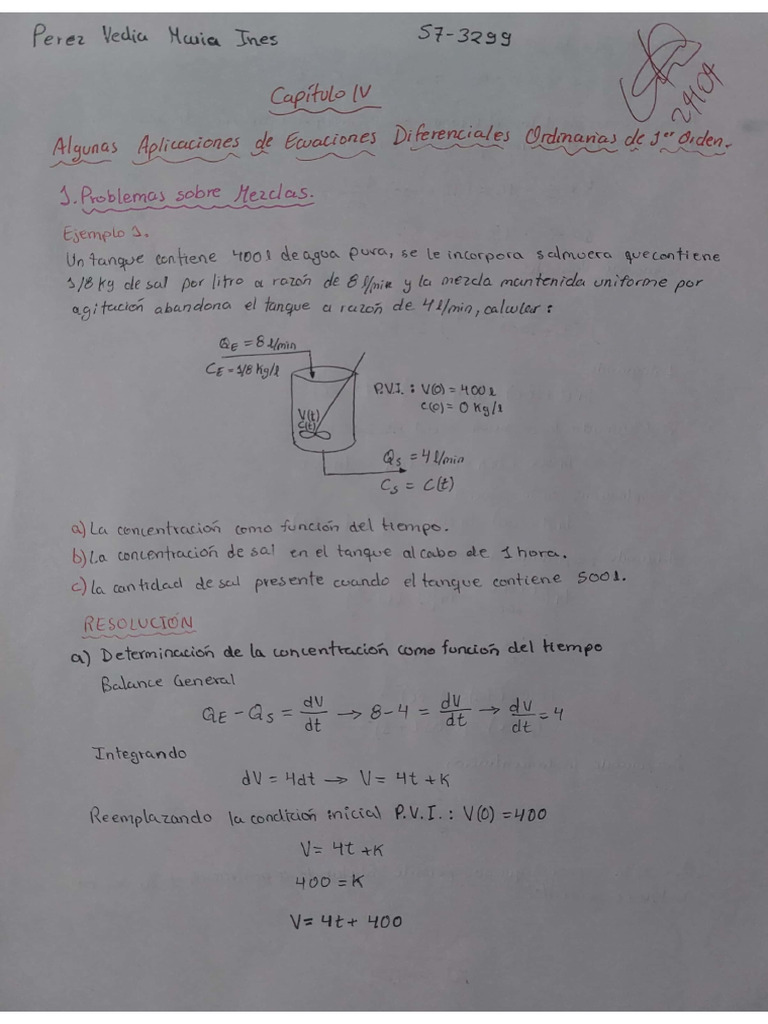 Perez Vedia Maria Ines 57-3299
24/04
Capítulo IV
Algunas Aplicaciones de Ecuaciones Diferenciales Ordinarias de 1er Orden.
1. Problemas sobre Mezclas.
Ejemplo 1.
Un tanque contiene 400 l de agua pura, se le incorpora salmuera que contiene
1/8 kg de sal por litro a razón de 8 l/min y la mezcla mantenida uniforme por
agitación abandona el tanque a razón de 4 l/min, calcular:
QE = 8 l/min
CE = 1/8 Kg/l
P.V.I. : V(0) = 400 l
C(0) = 0 Kg/l
V(t)
C(t)
Qs = 4 l/min
Cs = C(t)
a) La concentración como función del tiempo.
b) La concentración de sal en el tanque al cabo de 1 hora.
c) La cantidad de sal presente cuando el tanque contiene 500 l.
RESOLUCIÓN
a) Determinación de la concentración como función del tiempo
Balance General
QE - Qs = dV/dt → 8-4 = dV/dt → dV/dt = 4
Integrando
dV = 4dt → V = 4t + K
Reemplazando la condición inicial P.V.I. : V(0) = 400
V = 4t + K
400 = K
V = 4t + 400